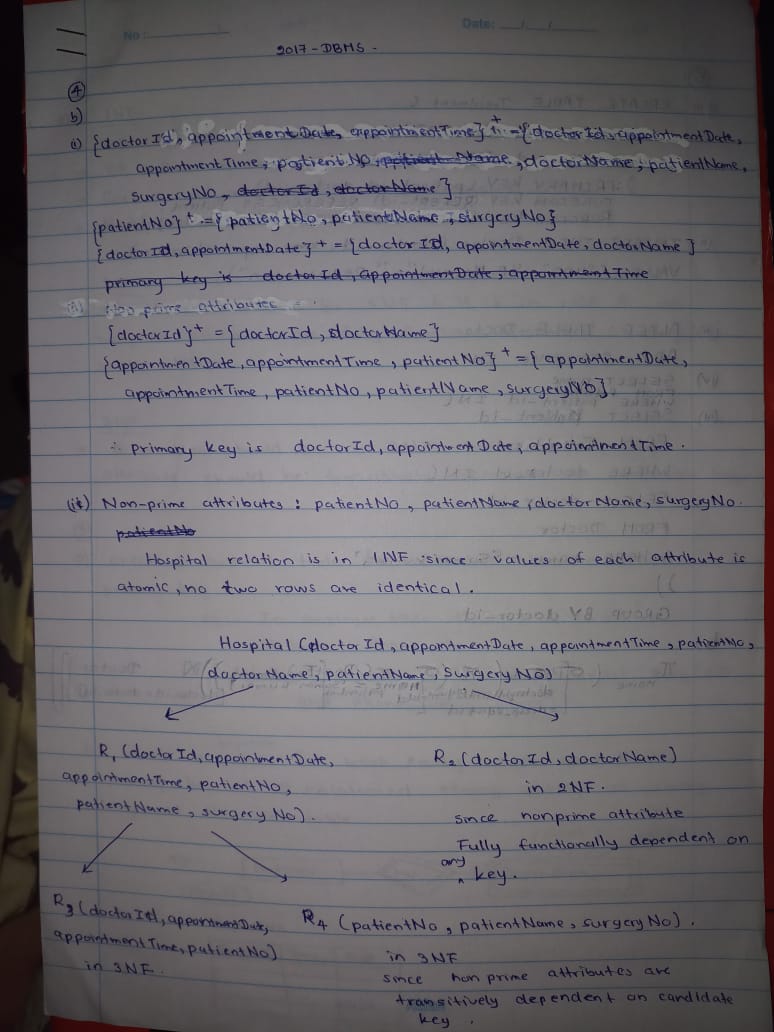 No:
Date:
2017 - DBMS -
4
b)
i) {doctorId, appointmentDate, appointmentTime}+ = {doctorId, appointmentDate,
appointmentTime, patientNo, patient Name, doctorName, patientName,
surgeryNo, doctorId, doctorName}
{patientNo}+ = {patientNo, patientName, surgeryNo}
{doctorId, appointmentDate}+ = {doctorId, appointmentDate, doctorName}
primary key is doctorId, appointmentDate, appointmentTime
ii) Non prime attributes =
{doctorId}+ = {doctorId, doctorName}
{appointmentDate, appointmentTime, patientNo}+ = {appointmentDate,
appointmentTime, patientNo, patientName, surgeryNo}.
∴ primary key is doctorId, appointmentDate, appointmentTime.
(ii) Non-prime attributes : patientNo, patientName, doctorName, surgeryNo.
patientNo
Hospital relation is in 1NF since values of each attribute is
atomic, no two rows are identical.
Hospital (doctorId, appointmentDate, appointmentTime, patientNo,
doctorName, patientName, surgeryNo)
R1 (doctorId, appointmentDate,
appointmentTime, patientNo,
patientName, surgery No).
R2 (doctorId, doctorName)
in 2NF.
since nonprime attribute
Fully functionally dependent on
any
^ key.
R3 (doctorId, appointmentDate,
appointmentTime, patientNo)
in 3NF.
R4 (patientNo, patientName, surgery No).
in 3NF
since non prime attributes are
transitively dependent on candidate
key.